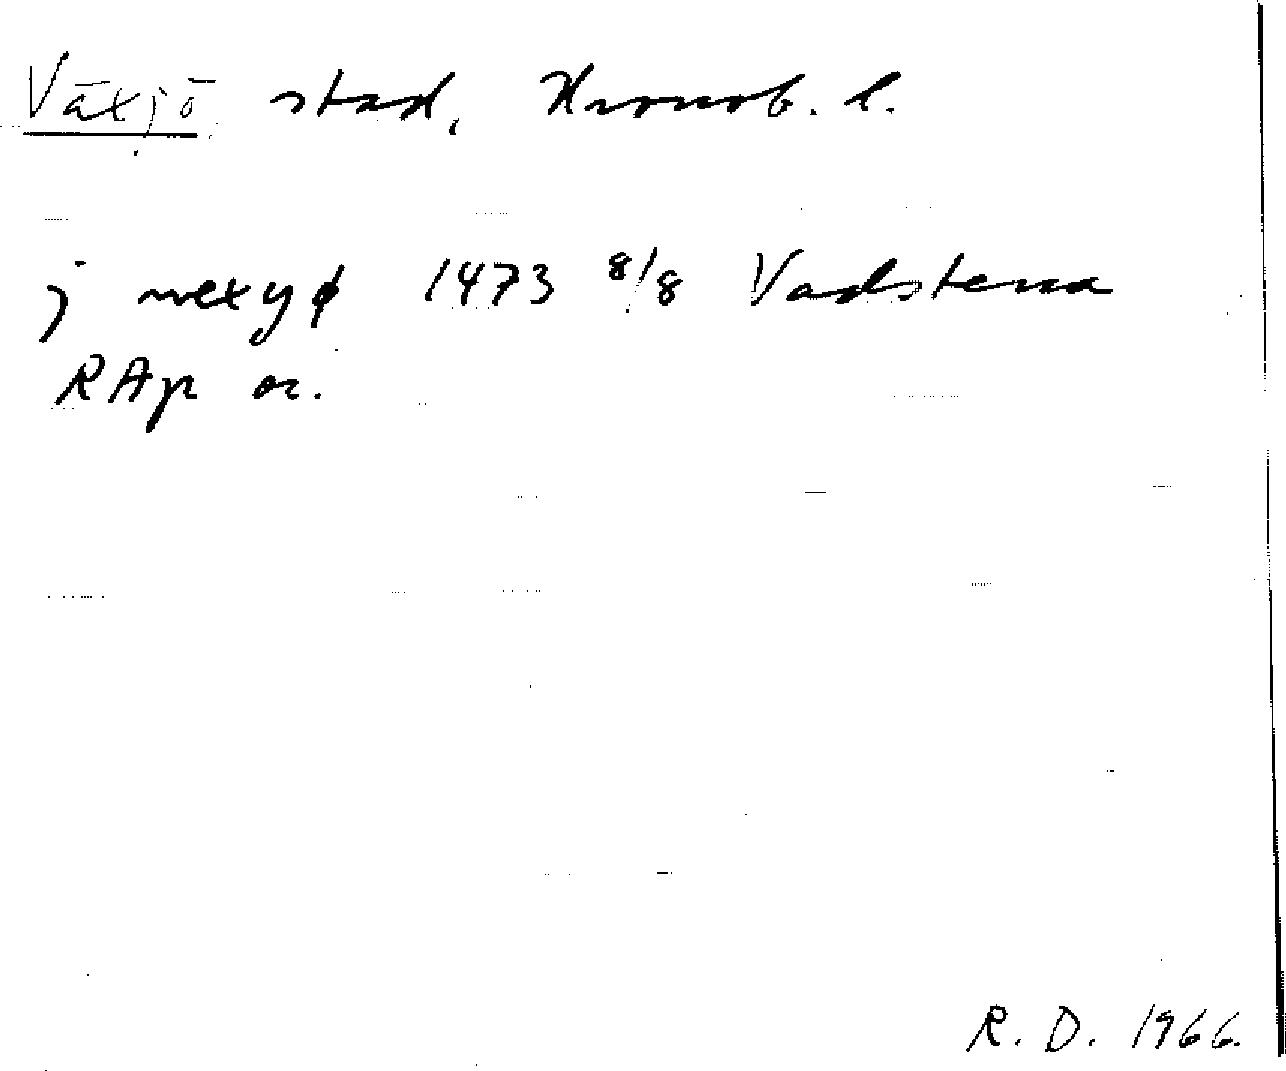 Växjö stad, Kronob. l.
j wexyø 1473 8/8 Vadstena
RAp or.
R. D. 1966.